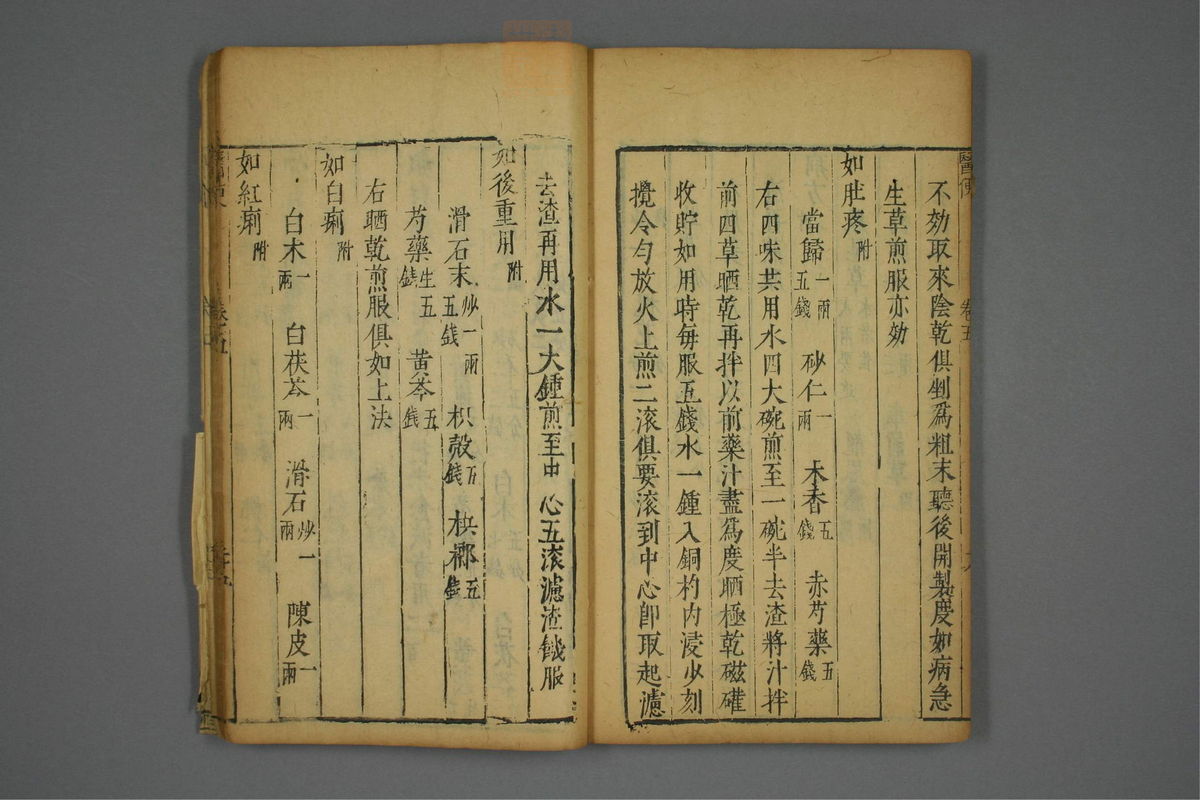 醫便
卷五
不効取來陰乾俱剉爲粗末聽後開製度如病急
生草煎服亦効
如肚疼附
當歸一兩五錢 砂仁一兩 木香五錢 赤芍藥五錢
右四味共用水四大碗煎至一碗半去渣將汁拌
前四草晒乾再拌以前藥汁盡爲度晒極乾磁罐
收貯如用時每服五錢水一鍾入銅杓内浸少刻
攪令勻放火上煎二滚俱要滚到中心卽取起濾
去渣再用水一大鍾煎至中心五滚濾渣餓服
如後重用附
滑石末炒一兩五錢 枳殻五錢 梹榔五錢
芍藥生五錢 黄芩五錢
右晒乾煎服俱如上法
如白痢附
白术一兩 白茯苓一兩 滑石炒一兩 陳皮一兩
如紅痢附
卷之五